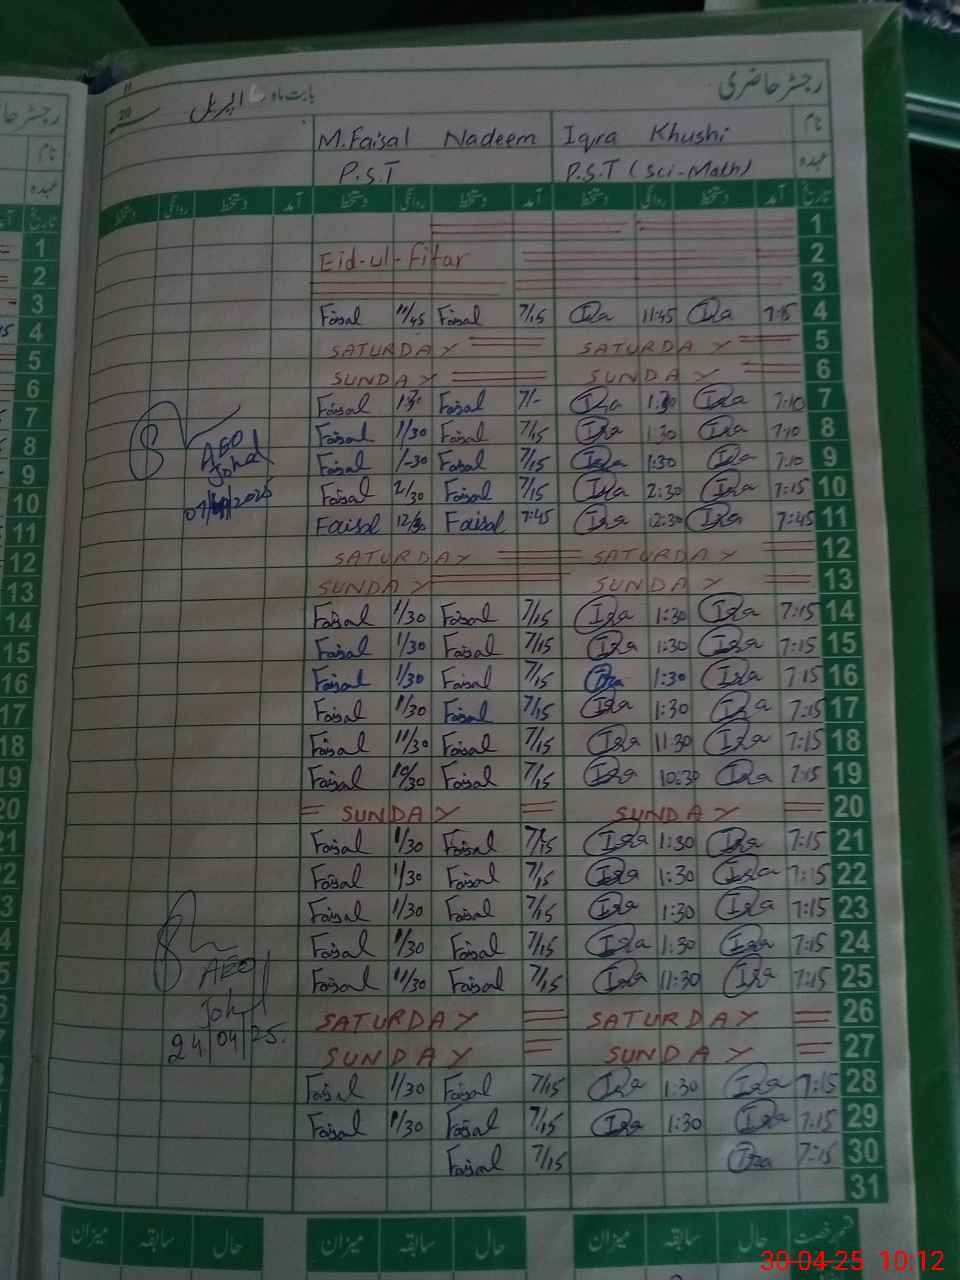 رجسٹر حاضری
بابت ماہ اپریل 20
نام Iqra Khushi M.Faisal Nadeem
عہدہ P.S.T (Sci-Math) P.S.T
تاریخ آمد دستخط روانگی دستخط آمد دستخط روانگی دستخط آمد دستخط روانگی دستخط
1
Eid-ul-Fitar 2
3
Faisal 11/45 Faisal 7/15 Iqra 11:45 Iqra 7:15 4
SATURDAY SATURDAY 5
SUNDAY SUNDAY 6
Faisal 1:30 Faisal 7/- Iqra 1:30 Iqra 7:10 7
Faisal 1/30 Faisal 7/15 Iqra 1:30 Iqra 7:10 8
AEO
Johal
Faisal 1-30 Faisal 7/15 Iqra 1:30 Iqra 7:10 9
Faisal 2/30 Faisal 7/15 Iqra 2:30 Iqra 7:15 10
Faisal 12/30 Faisal 7:45 Iqra 12:30 Iqra 7:45 11
SATURDAY SATURDAY 12
SUNDAY SUNDAY 13
Faisal 1/30 Faisal 7/15 Iqra 1:30 Iqra 7:15 14
Faisal 1/30 Faisal 7/15 Iqra 1:30 Iqra 7:15 15
Faisal 1/30 Faisal 7/15 Iqra 1:30 Iqra 7:15 16
Faisal 1/30 Faisal 7/15 Iqra 1:30 Iqra 7:15 17
Faisal 11/30 Faisal 7/15 Iqra 11:30 Iqra 7:15 18
Faisal 10/30 Faisal 7/15 Iqra 10:30 Iqra 7:15 19
SUNDAY SUNDAY 20
Faisal 1/30 Faisal 7/15 Iqra 1:30 Iqra 7:15 21
Faisal 1/30 Faisal 7/15 Iqra 1:30 Iqra 7:15 22
Faisal 1/30 Faisal 7/15 Iqra 1:30 Iqra 7:15 23
Faisal 1/30 Faisal 7/15 Iqra 1:30 Iqra 7:15 24
AEO
Johal
24/04/25.
Faisal 11/30 Faisal 7/15 Iqra 11:30 Iqra 7:15 25
SATURDAY SATURDAY 26
SUNDAY SUNDAY 27
Faisal 1/30 Faisal 7/15 Iqra 1:30 Iqra 7:15 28
Faisal 1/30 Faisal 7/15 Iqra 1:30 Iqra 7:15 29
Faisal 7/15 Iqra 7:15 30
31
قسم رخصت حال سابقہ میزان حال سابقہ میزان حال سابقہ میزان
30-04-25 10:12